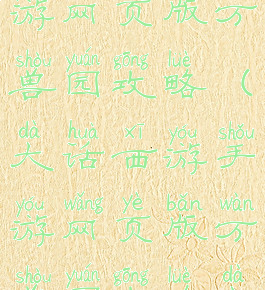 游网页版万
shòu yuán gōng lüè
兽园攻略（
dà huà xī yóu shǒu
大话西游手
yóu wǎng yè bǎn wàn
游网页版万
shòu yuán gōng lüè dà